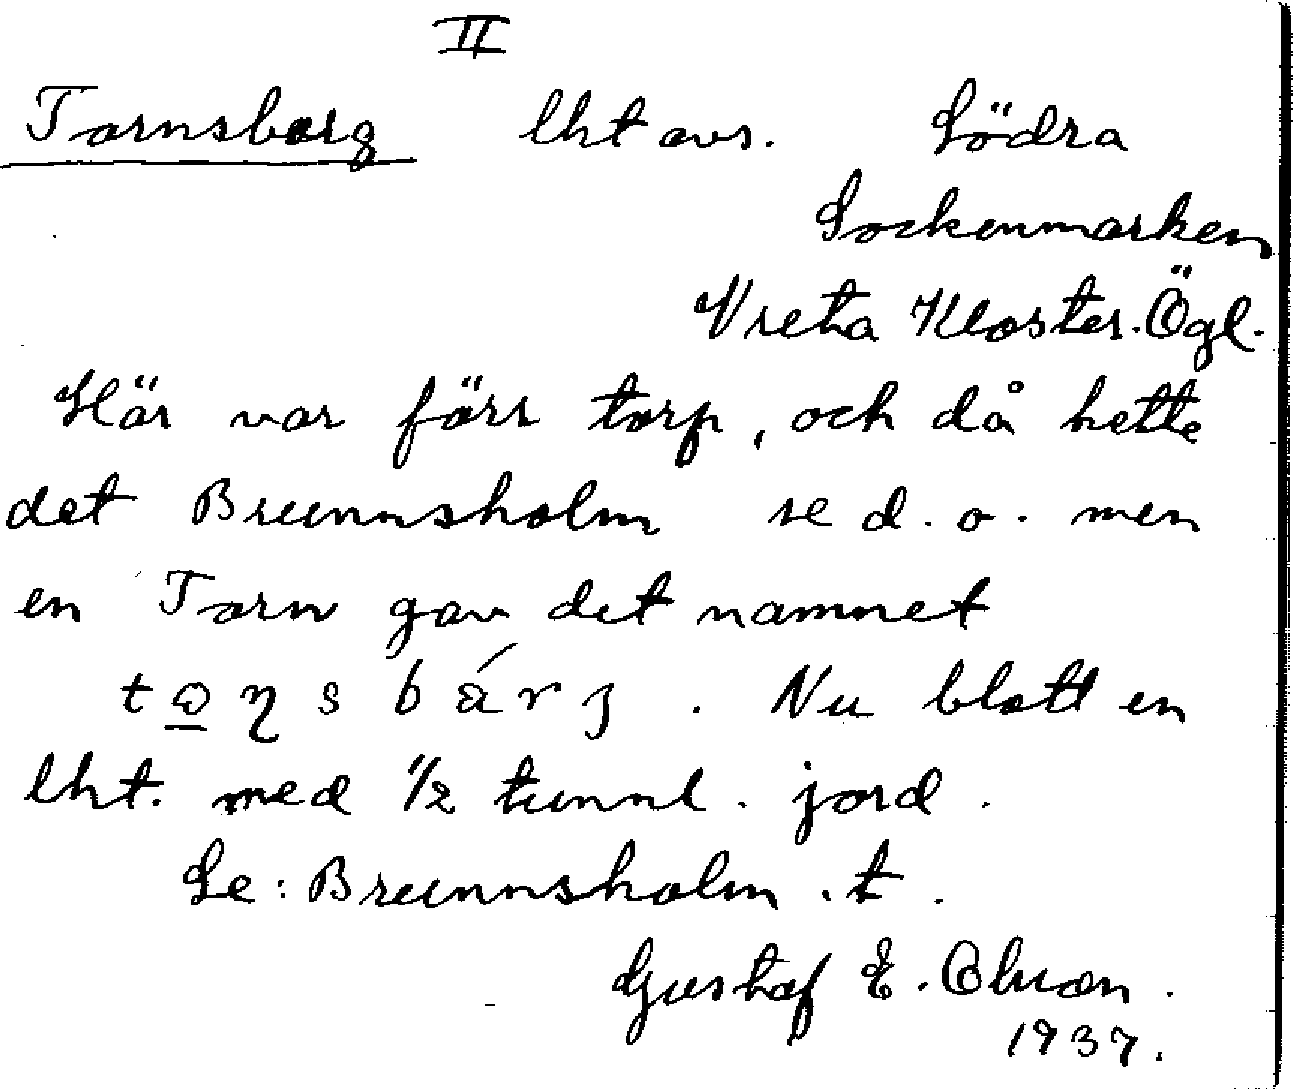 II
Tornsberg lht avs. Södra
Sockenmarken
Vreta Kloster. Ögl.
Här var förr torp, och då hette
det Brunnsholm se d.o. men
en Torn gav det namnet
Nu blott en
lht. med 1/2 tunnl. jord.
Se: Brunnsholm .t.
Gustaf E. Olsson.
1937.